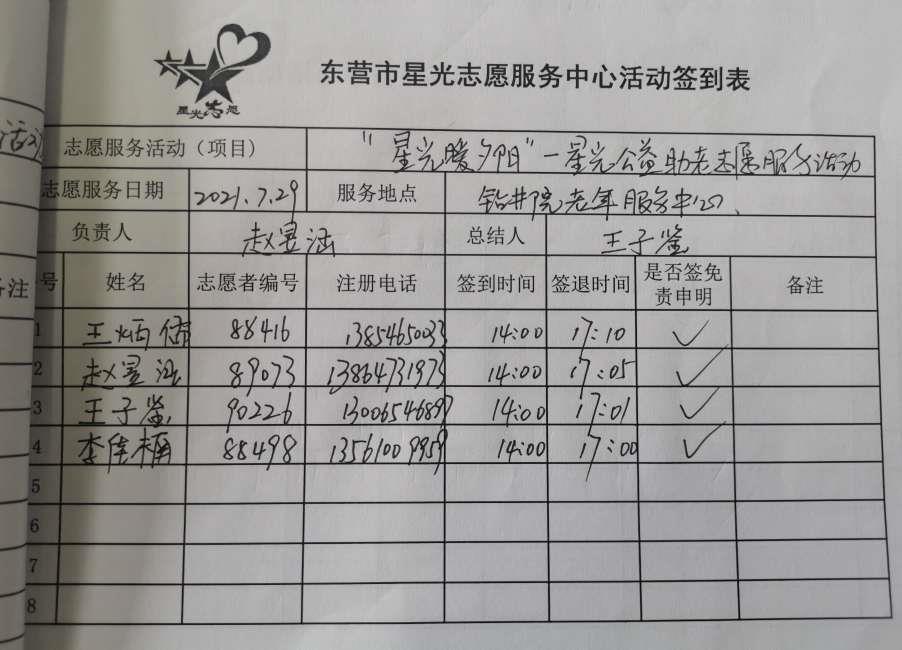 星光志愿
东营市星光志愿服务中心活动签到表
志愿服务活动（项目） "星光暖夕阳"—星光公益助老志愿服务活动
志愿服务日期 2021.7.29 服务地点 钻井院老年服务中心、
负责人 赵昱涵 总结人 王子鉴
备注 号 姓名 志愿者编号 注册电话 签到时间 签退时间 是否签免
责申明 备注
1 王炳 88416 13854650033 14:00 17:10 ✓
2 赵昱涵 89073 13864731973 14:00 17:05 ✓
3 王子鉴 90226 13006546897 14:00 17:01 ✓
4 李佳楠 88498 13561009959 14:00 17:00 ✓
5
6
7
8